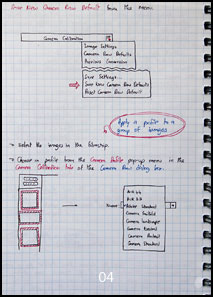 Save New Camera Raw Defaults from the menu.
Camera Calibration
Image Settings
Camera Raw Defaults
Previous Conversion
Save Settings...
Save New Camera Raw Defaults
Reset Camera Raw Defaults
Apply a profile to a
group of images
→ Select the images in the filmstrip.
→ Choose a profile from the Camera Profile pop-up menu in the
Camera Calibration tab of the Camera Raw dialog box.
ACR 4.4
Adobe Standard
Camera Faithful
Camera Landscape
Camera Neutral
Camera Portrait
Camera Standard
04